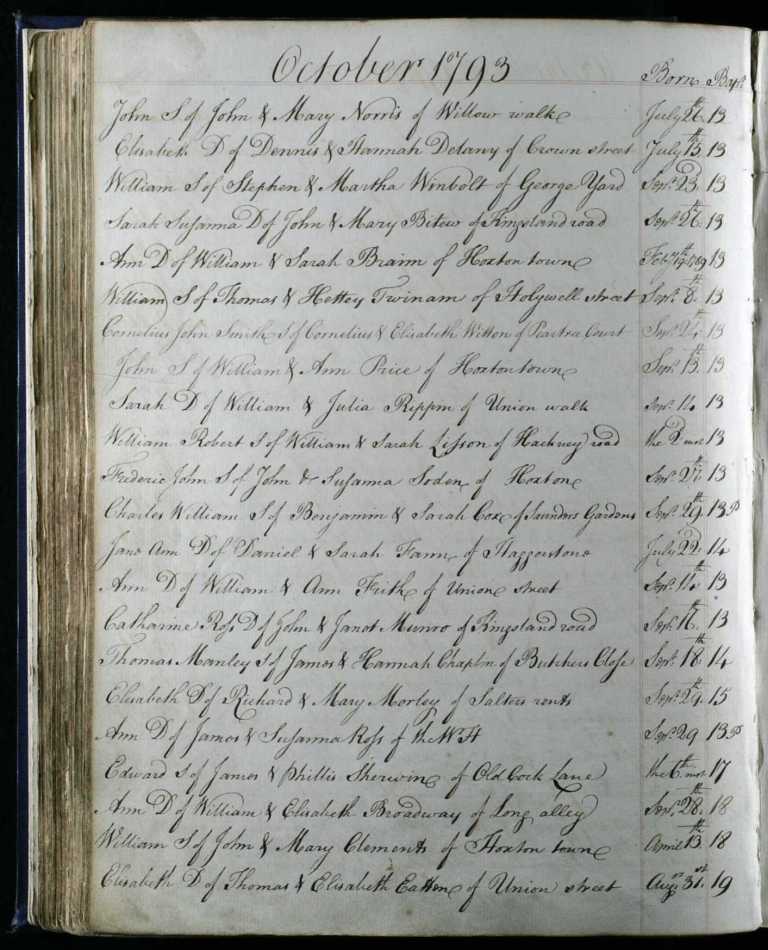 October 1793
Born Bapt
John S of John & Mary Norris of Willow walk July 26th 13
Elisabeth D of Dennis & Hannah Delany of Crown street July 15th 13
William S of Stephen & Martha Winbolt of George Yard Sepr 23d 13
Sarah Susanna D of John & Mary of Kingsland road Sepr 26th 13
Ann D of William & Sarah Braim of Hoxton town Feby 19th 1789 13
William S of Thomas & Hettey Twinam of Holywell street Sepr 8th 13
Cornelius John Smith S of Cornelius & Elisabeth Witton of Peartree Court Sepr 24th 13
John S of William & Ann Price of Hoxton town Sepr 13th 13
Sarah D of William & Julia Rippin of Union walk Sepr 14 13
William Robert S of William & Sarah Lisson of Hackney road the 2d inst 13
Frederic John S of John & Susanna Soden of Hoxton Sepr 27th 13
Charles William S of Benjamin & Sarah Cox of Saunders Gardens Sepr 29th 13 P
Jane Ann D of Daniel & Sarah Fann of Haggerstone July 22d 14
Ann D of William & Ann Frith of Union street Sepr 14th 13
Catharine Ross D of John & Janet Munro of Kingsland road Sepr 16th 13
Thomas Manley S of James & Hannah Chaplin of Butchers Close Sepr 18th 14
Elisabeth D of Richard & Mary Morley of Salters rents Sepr 29th 15
Ann D of James & Susanna Ross of the WH Sepr 29 13 P
Edward S of James & Phillis Sherwin of Old Cock Lane the 6th inst 17
Ann D of William & Elisabeth Broadway of Long alley Sepr 28th 18
William S of John & Mary Clements of Hoxton town April 13th 18
Elisabeth D of Thomas & Elisabeth Eatten of Union street Augst 31st 19